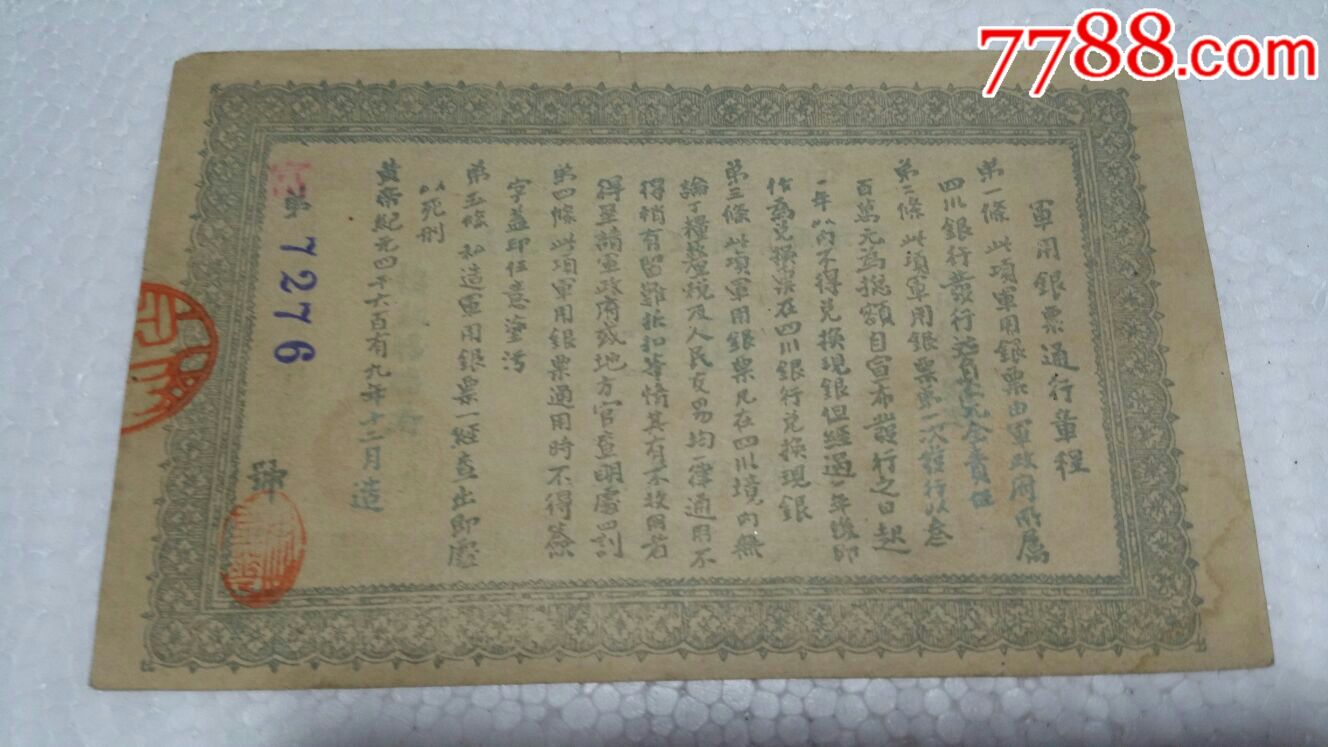 7788.com
軍用銀票通行章程
第一條 此項軍用銀票由軍政府所屬
四川銀行發行完全責任
第二條 此項軍用銀票第一次發行以叁
百萬元為總額自宣布發行之日起
一年以內不得兌換現銀但經過一年後即
作為兌換票在四川銀行兌換現銀
第三條 此項軍用銀票凡在四川境內無
論丁糧釐稅及人民交易均一律通用不
得稍有留難折扣等情其有不收用者
得呈請軍政府或地方官查明處罰
第四條 此項軍用銀票通用時不得簽
字蓋印任意塗污
第五條 私造軍用銀票一經查出即處
以死刑
黃帝紀元四千六百有九年十二月造
第 7276 號